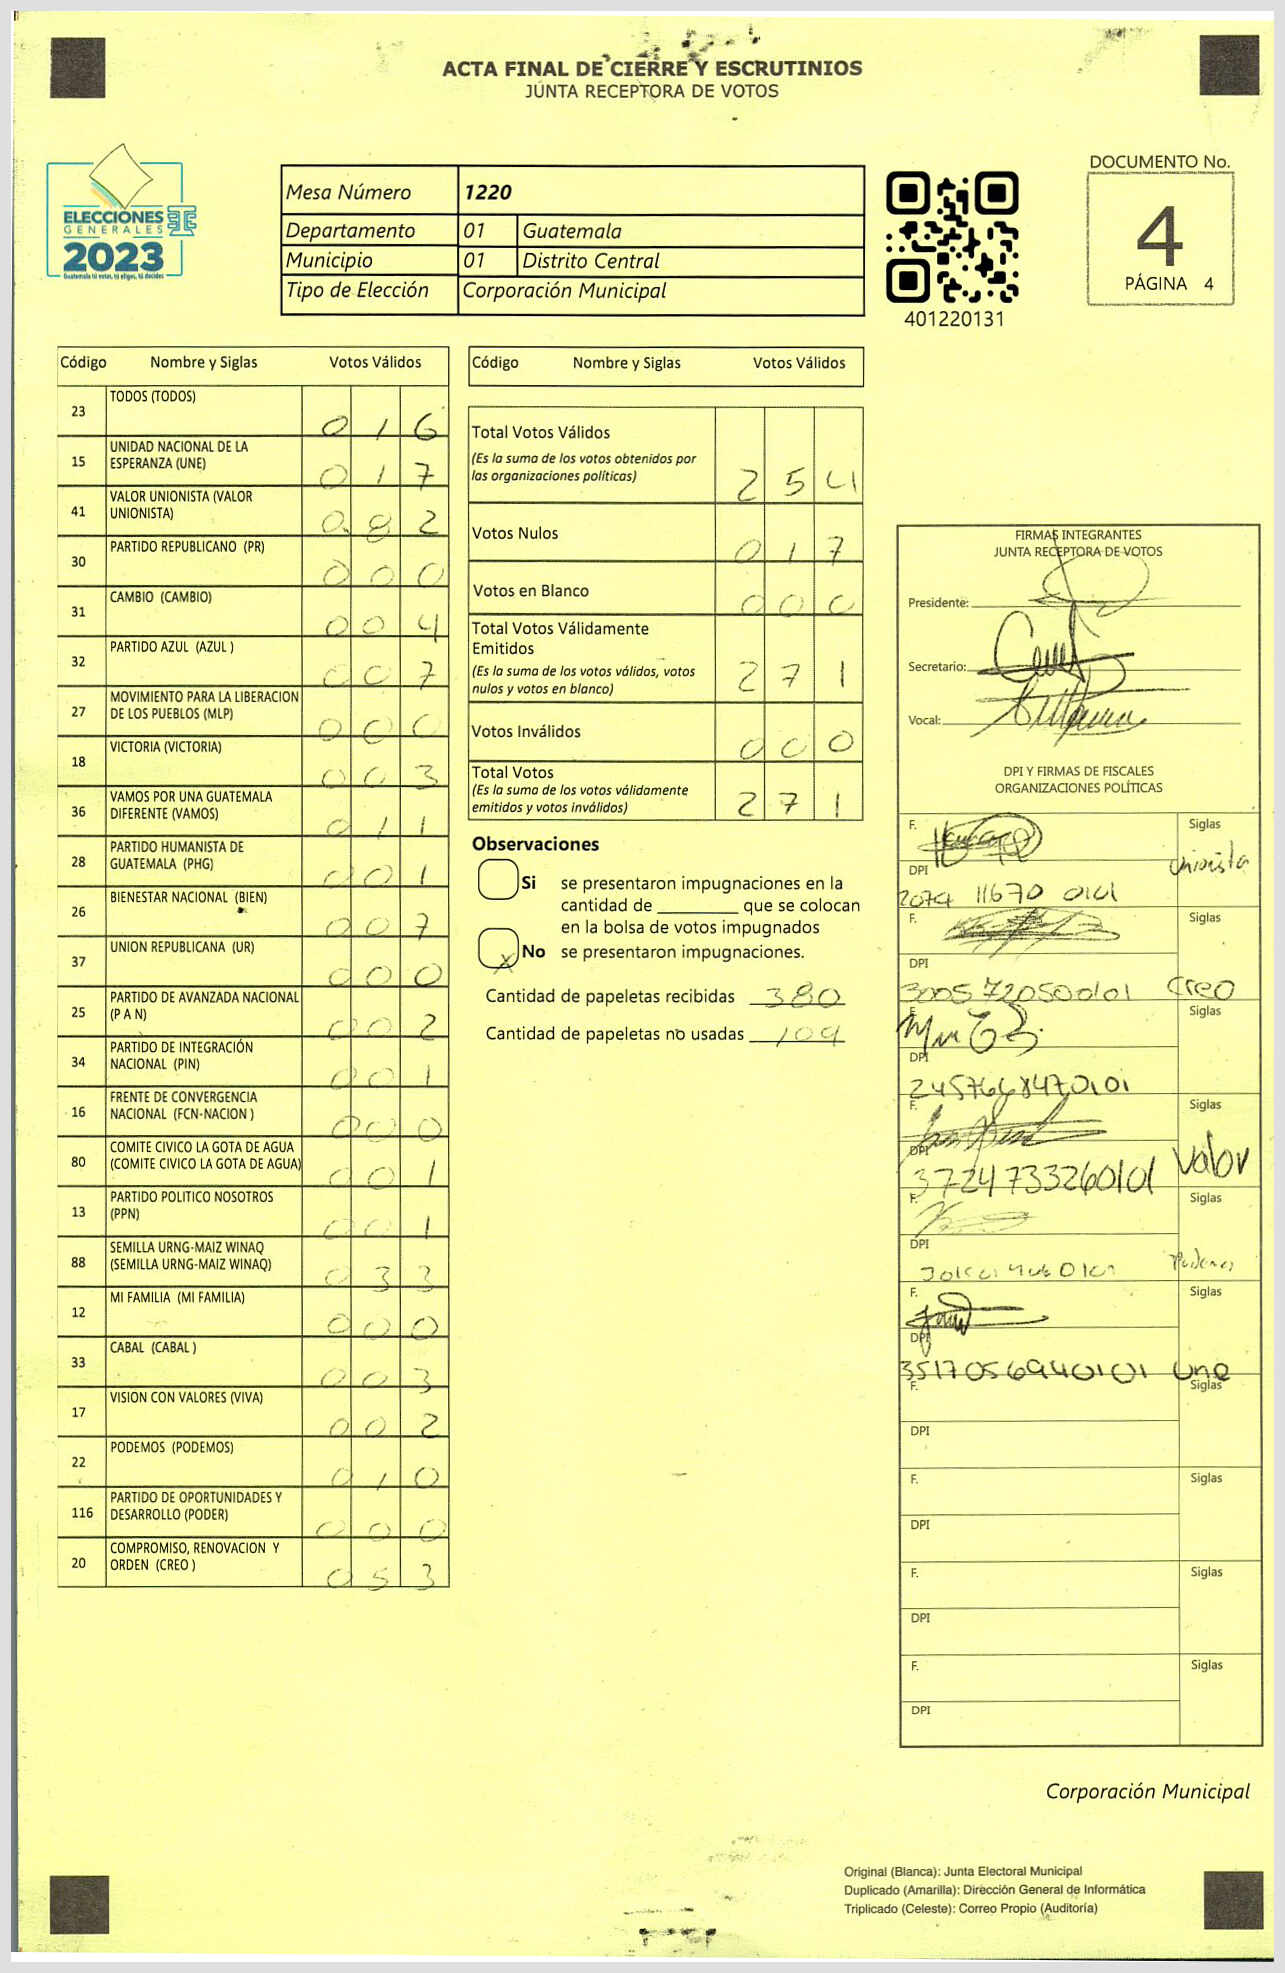 ACTA FINAL DE CIERRE Y ESCRUTINIOS
JUNTA RECEPTORA DE VOTOS
ELECCIONES
GENERALES
2023
Guatemala tú votas, tú eliges, tú decides
Mesa Número 1220
Departamento 01 Guatemala
Municipio 01 Distrito Central
Tipo de Elección Corporación Municipal
401220131
DOCUMENTO No.
4
PÁGINA 4
Código Nombre y Siglas Votos Válidos
23 TODOS (TODOS) 0 1 6
15 UNIDAD NACIONAL DE LA
ESPERANZA (UNE) 0 1 7
41 VALOR UNIONISTA (VALOR
UNIONISTA) 0 8 2
30 PARTIDO REPUBLICANO (PR) 0 0 0
31 CAMBIO (CAMBIO) 0 0 4
32 PARTIDO AZUL (AZUL ) 0 0 7
27 MOVIMIENTO PARA LA LIBERACION
DE LOS PUEBLOS (MLP) 0 0 0
18 VICTORIA (VICTORIA) 0 0 3
36 VAMOS POR UNA GUATEMALA
DIFERENTE (VAMOS) 0 1 1
28 PARTIDO HUMANISTA DE
GUATEMALA (PHG) 0 0 1
26 BIENESTAR NACIONAL (BIEN) 0 0 7
37 UNION REPUBLICANA (UR) 0 0 0
25 PARTIDO DE AVANZADA NACIONAL
(P A N) 0 0 2
34 PARTIDO DE INTEGRACIÓN
NACIONAL (PIN) 0 0 1
16 FRENTE DE CONVERGENCIA
NACIONAL (FCN-NACION ) 0 0 0
80 COMITE CIVICO LA GOTA DE AGUA
(COMITE CIVICO LA GOTA DE AGUA) 0 0 1
13 PARTIDO POLITICO NOSOTROS
(PPN) 0 0 1
88 SEMILLA URNG-MAIZ WINAQ
(SEMILLA URNG-MAIZ WINAQ) 0 3 3
12 MI FAMILIA (MI FAMILIA) 0 0 0
33 CABAL (CABAL ) 0 0 3
17 VISION CON VALORES (VIVA) 0 0 2
22 PODEMOS (PODEMOS) 0 1 0
116 PARTIDO DE OPORTUNIDADES Y
DESARROLLO (PODER) 0 0 0
20 COMPROMISO, RENOVACION Y
ORDEN (CREO ) 0 5 3
Código Nombre y Siglas Votos Válidos
Total Votos Válidos
(Es la suma de los votos obtenidos por
las organizaciones políticas) 2 5 4
Votos Nulos 0 1 7
Votos en Blanco 0 0 0
Total Votos Válidamente
Emitidos
(Es la suma de los votos válidos, votos
nulos y votos en blanco) 2 7 1
Votos Inválidos 0 0 0
Total Votos
(Es la suma de los votos válidamente
emitidos y votos inválidos) 2 7 1
Observaciones
Si se presentaron impugnaciones en la
cantidad de ________ que se colocan
en la bolsa de votos impugnados
X No se presentaron impugnaciones.
Cantidad de papeletas recibidas 380
Cantidad de papeletas no usadas 109
FIRMAS INTEGRANTES
JUNTA RECEPTORA DE VOTOS
Presidente:
Secretario:
Vocal:
DPI Y FIRMAS DE FISCALES
ORGANIZACIONES POLÍTICAS
F. Siglas
Unionista
DPI
2074 11670 0101
F. Siglas
DPI
3005 72050 0101 Creo
F. Siglas
DPI
2457668470101
F. Siglas
DPI
3724733260101 Valor
F. Siglas
DPI
F. Siglas
DPI
3517056940101 une
F. Siglas
DPI
F. Siglas
DPI
F. Siglas
DPI
F. Siglas
DPI
Corporación Municipal
Original (Blanca): Junta Electoral Municipal
Duplicado (Amarilla): Dirección General de Informática
Triplicado (Celeste): Correo Propio (Auditoría)